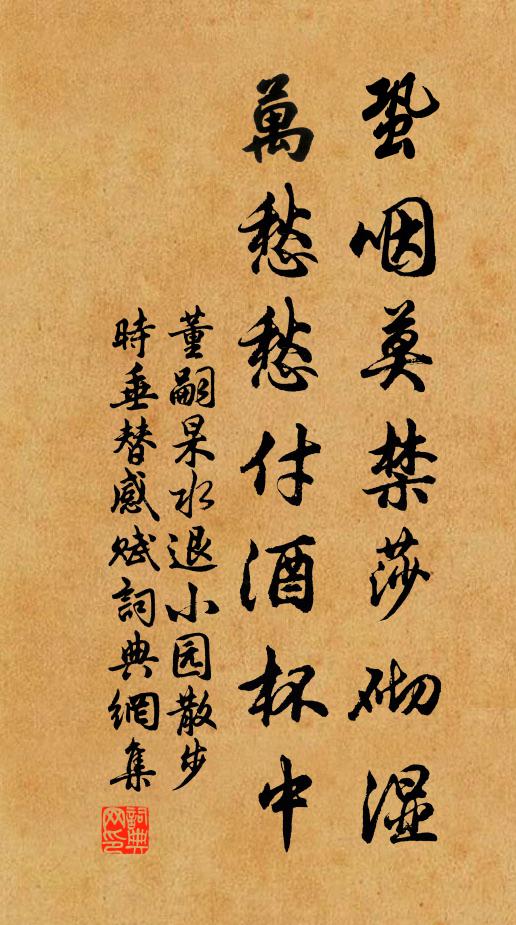 蛩咽莫禁莎砌湿
萬愁愁付酒杯中
董嗣杲水退小园散步
時垂替感赋詞典網集
詞典网印